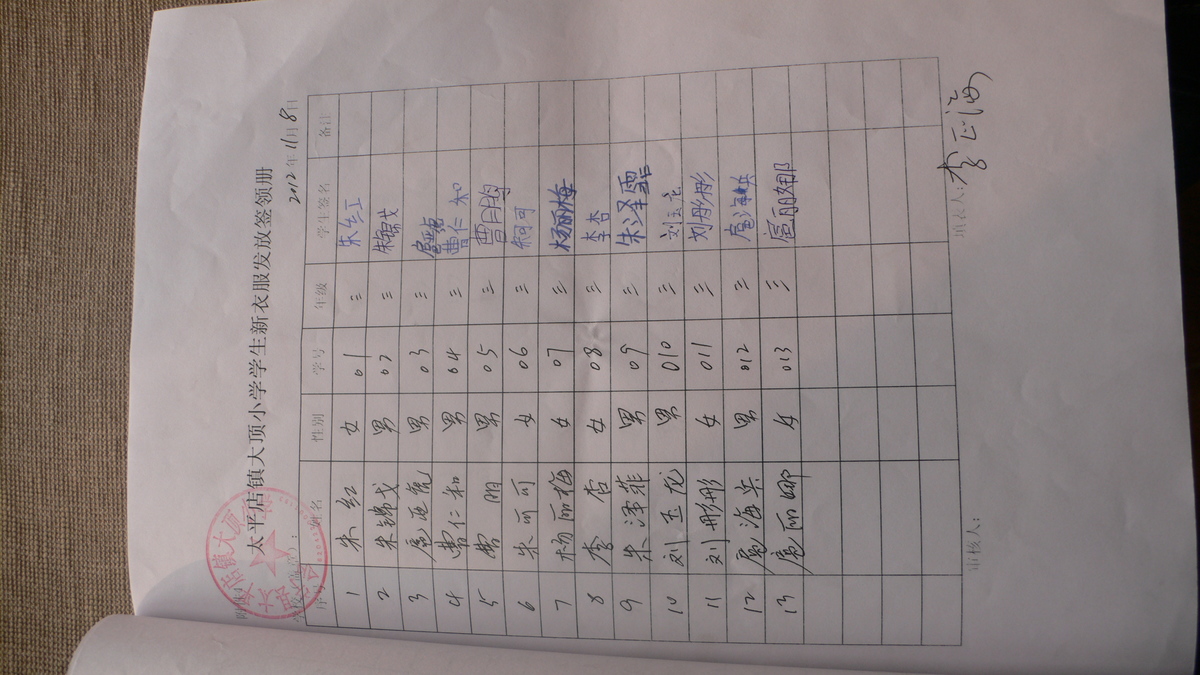 太平店镇大顶小学学生新衣服发放签领册
2012年11月8日
序号 姓名 性别 学号 年级 学生签名 备注
1 朱红 女 01 三 朱红
2 朱锦戈 男 02 三 朱锦戈
3 男 03 三
4 曹仁和 男 04 三 曹仁和
5 男 05 三
6 朱可可 女 06 三
7 杨丽梅 女 07 三 杨丽梅
8 李杏 女 08 三 李杏
9 朱泽菲 男 09 三 朱泽霏
10 刘玉龙 男 010 三 刘玉龙
11 刘彤彤 女 011 三 刘彤彤
12 扈海兵 男 012 三 扈海兵
13 扈丽娜 女 013 三 扈丽娜
审核人： 填表人：李正海